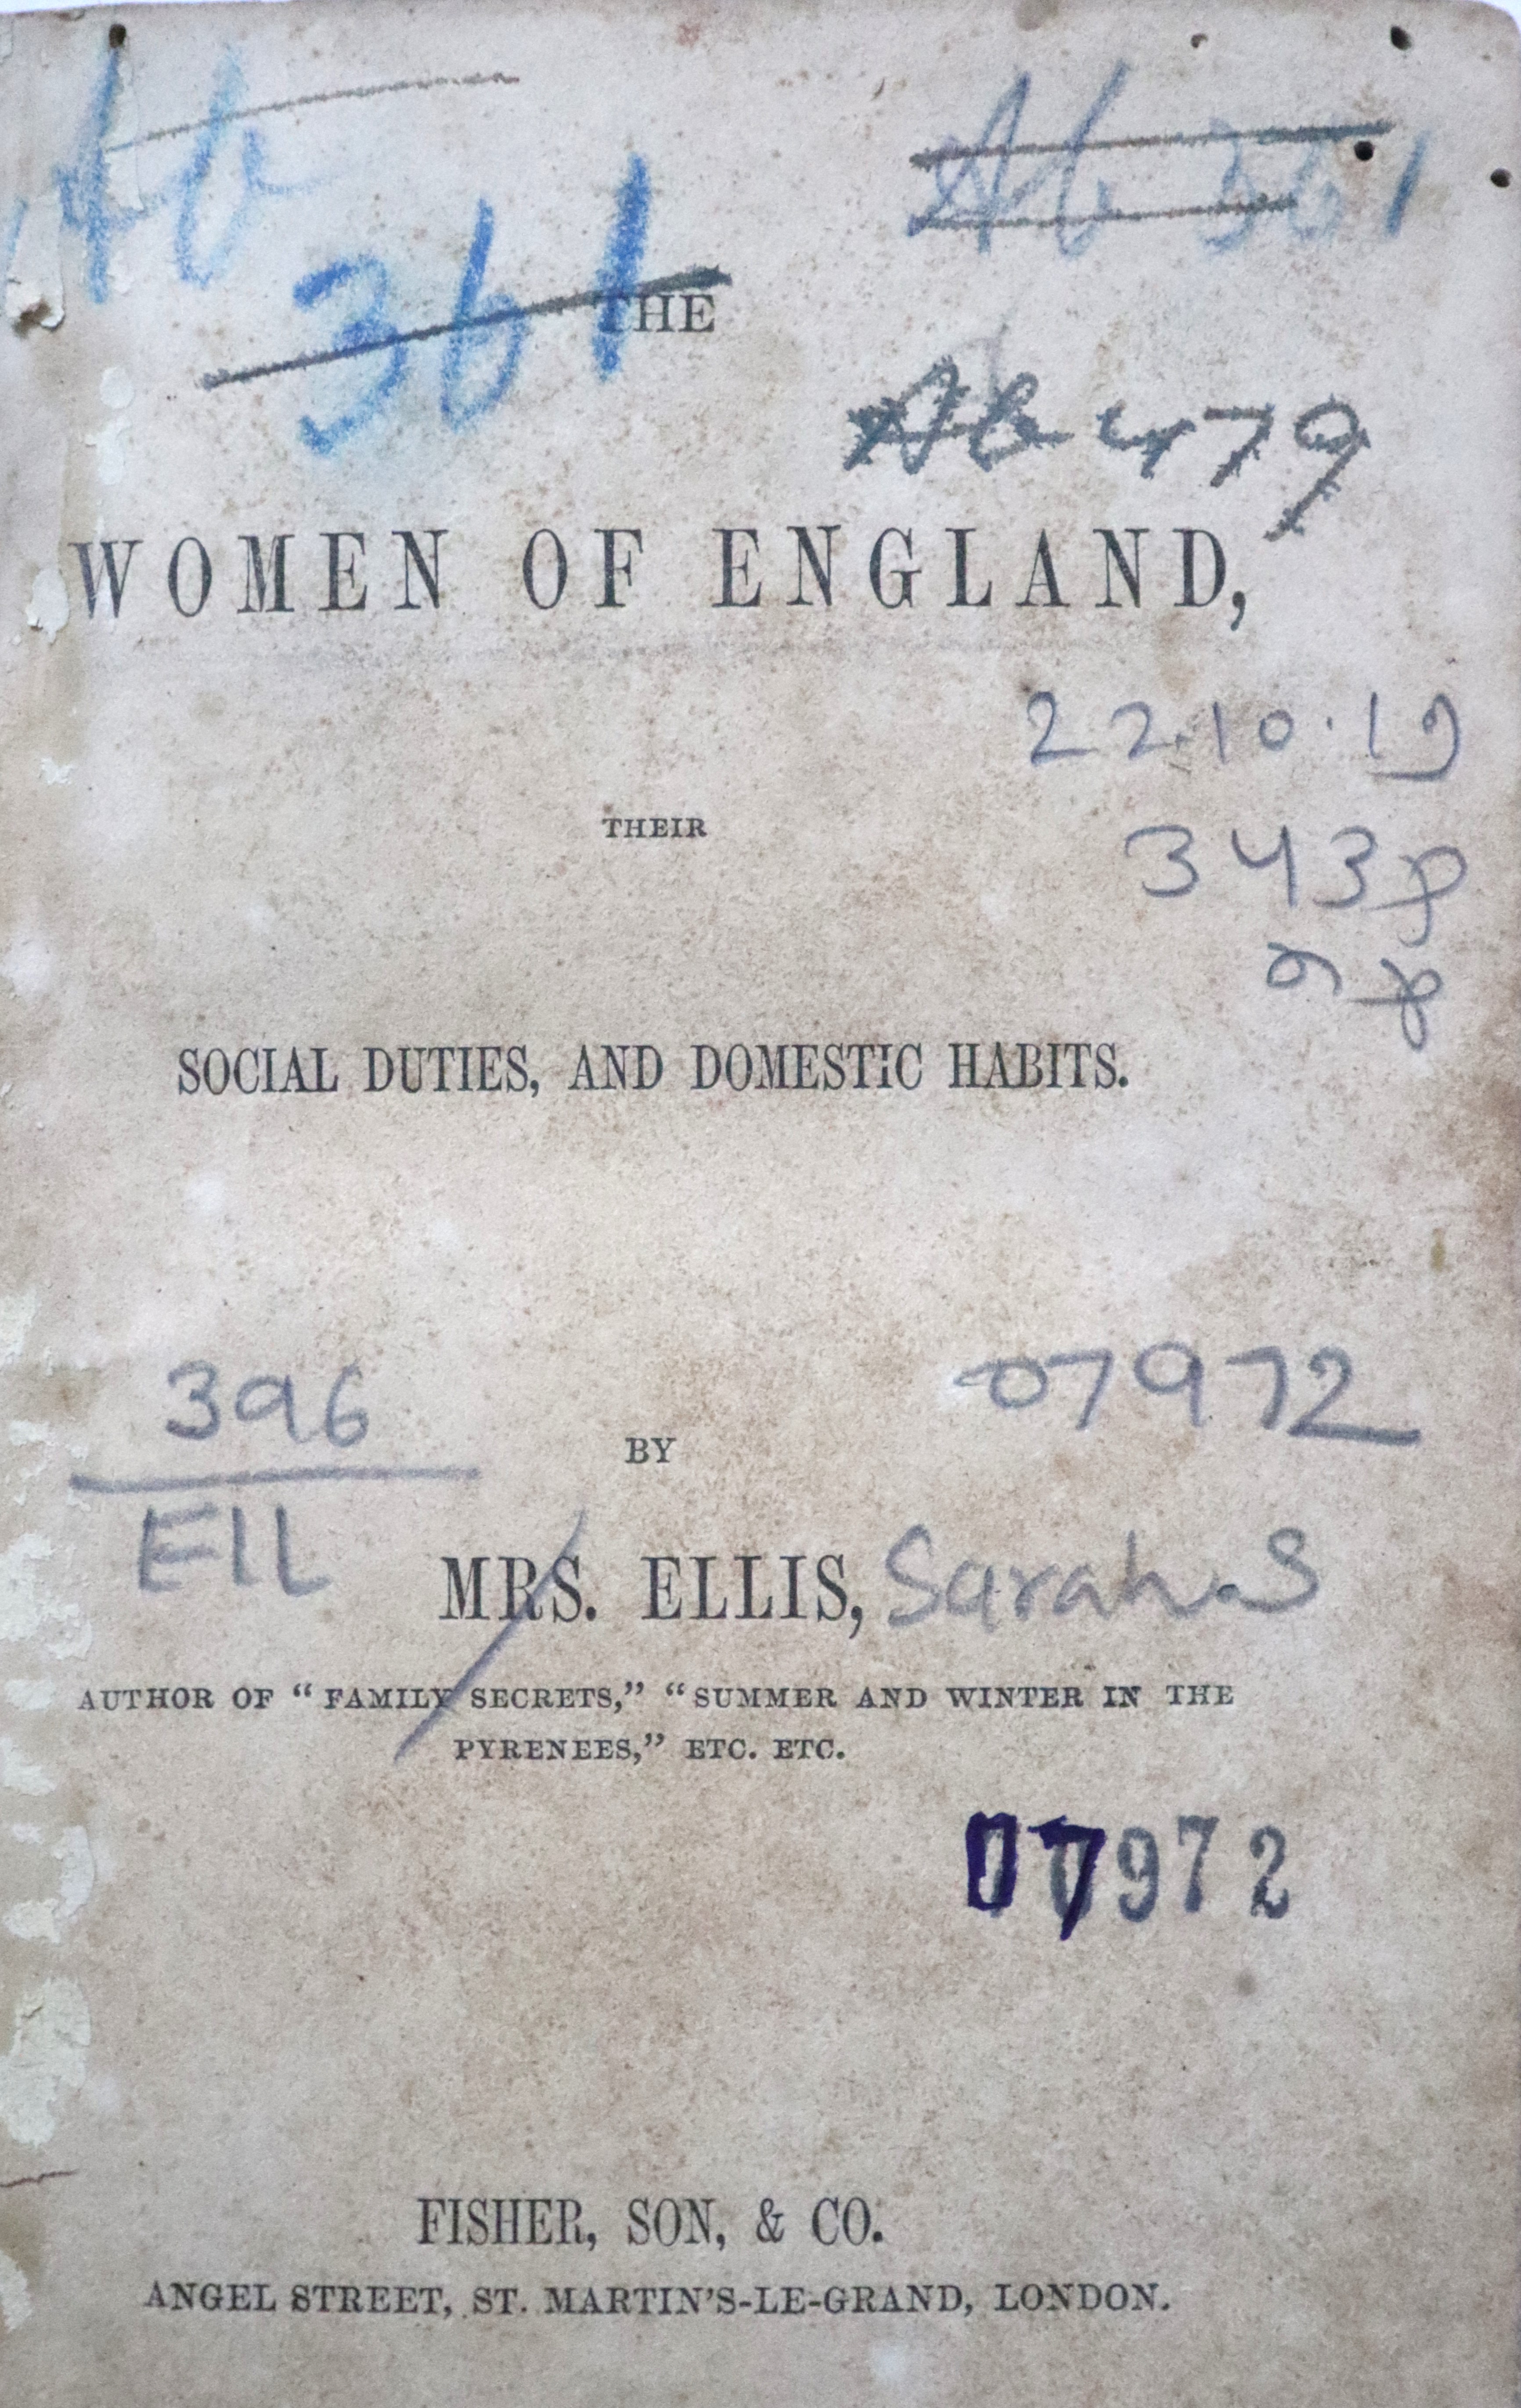 Ab
Ab 361
361
THE
Ab 479
WOMEN OF ENGLAND,
22.10.19
THEIR
343p
SOCIAL DUTIES, AND DOMESTIC HABITS.
396
07972
BY
Ell
MRS. ELLIS, Sarah.S
AUTHOR OF “FAMILY SECRETS,” “SUMMER AND WINTER IN THE
PYRENEES,” ETC. ETC.
07972
FISHER, SON, & CO.
ANGEL STREET, ST. MARTIN’S-LE-GRAND, LONDON.